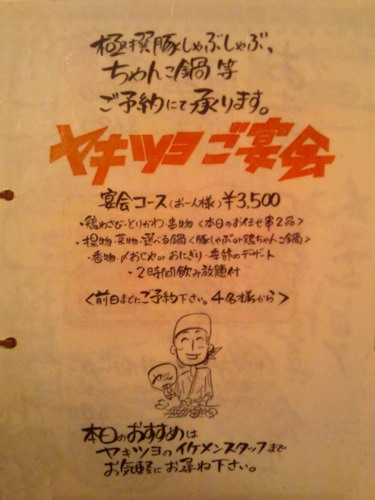 極撰豚しゃぶしゃぶ、
ちゃんこ鍋等
ご予約にて承ります。
ヤキツヨご宴会
宴会コース(お一人様)¥3,500
・鶏わさび・とりかわ・香物〈本日のお任せ串2品〉
・揚物・菜物・選べる鍋〈豚しゃぶor鶏ちゃんこ鍋〉
・香物・〆おじや or おにぎり・季節のデザート
・2時間飲み放題付
〈前日までにご予約下さい。4名様から〉
本日のおすすめは
ヤキツヨのイケメンスタッフまで
お気軽にお尋ね下さい。